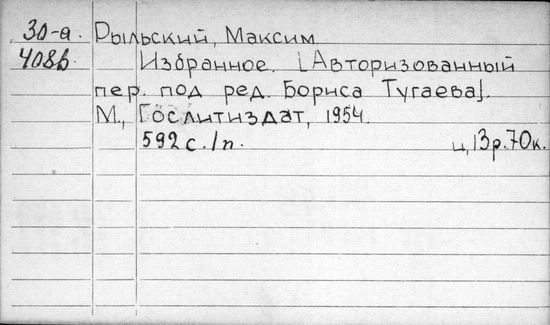 30-а. Рыльский, Максим.
408в. Избранное. [Авторизованный
пер. под ред. Бориса Тугаева].
М., Гослитиздат, 1954.
592 с. /п. ц. 13 р. 70 к.